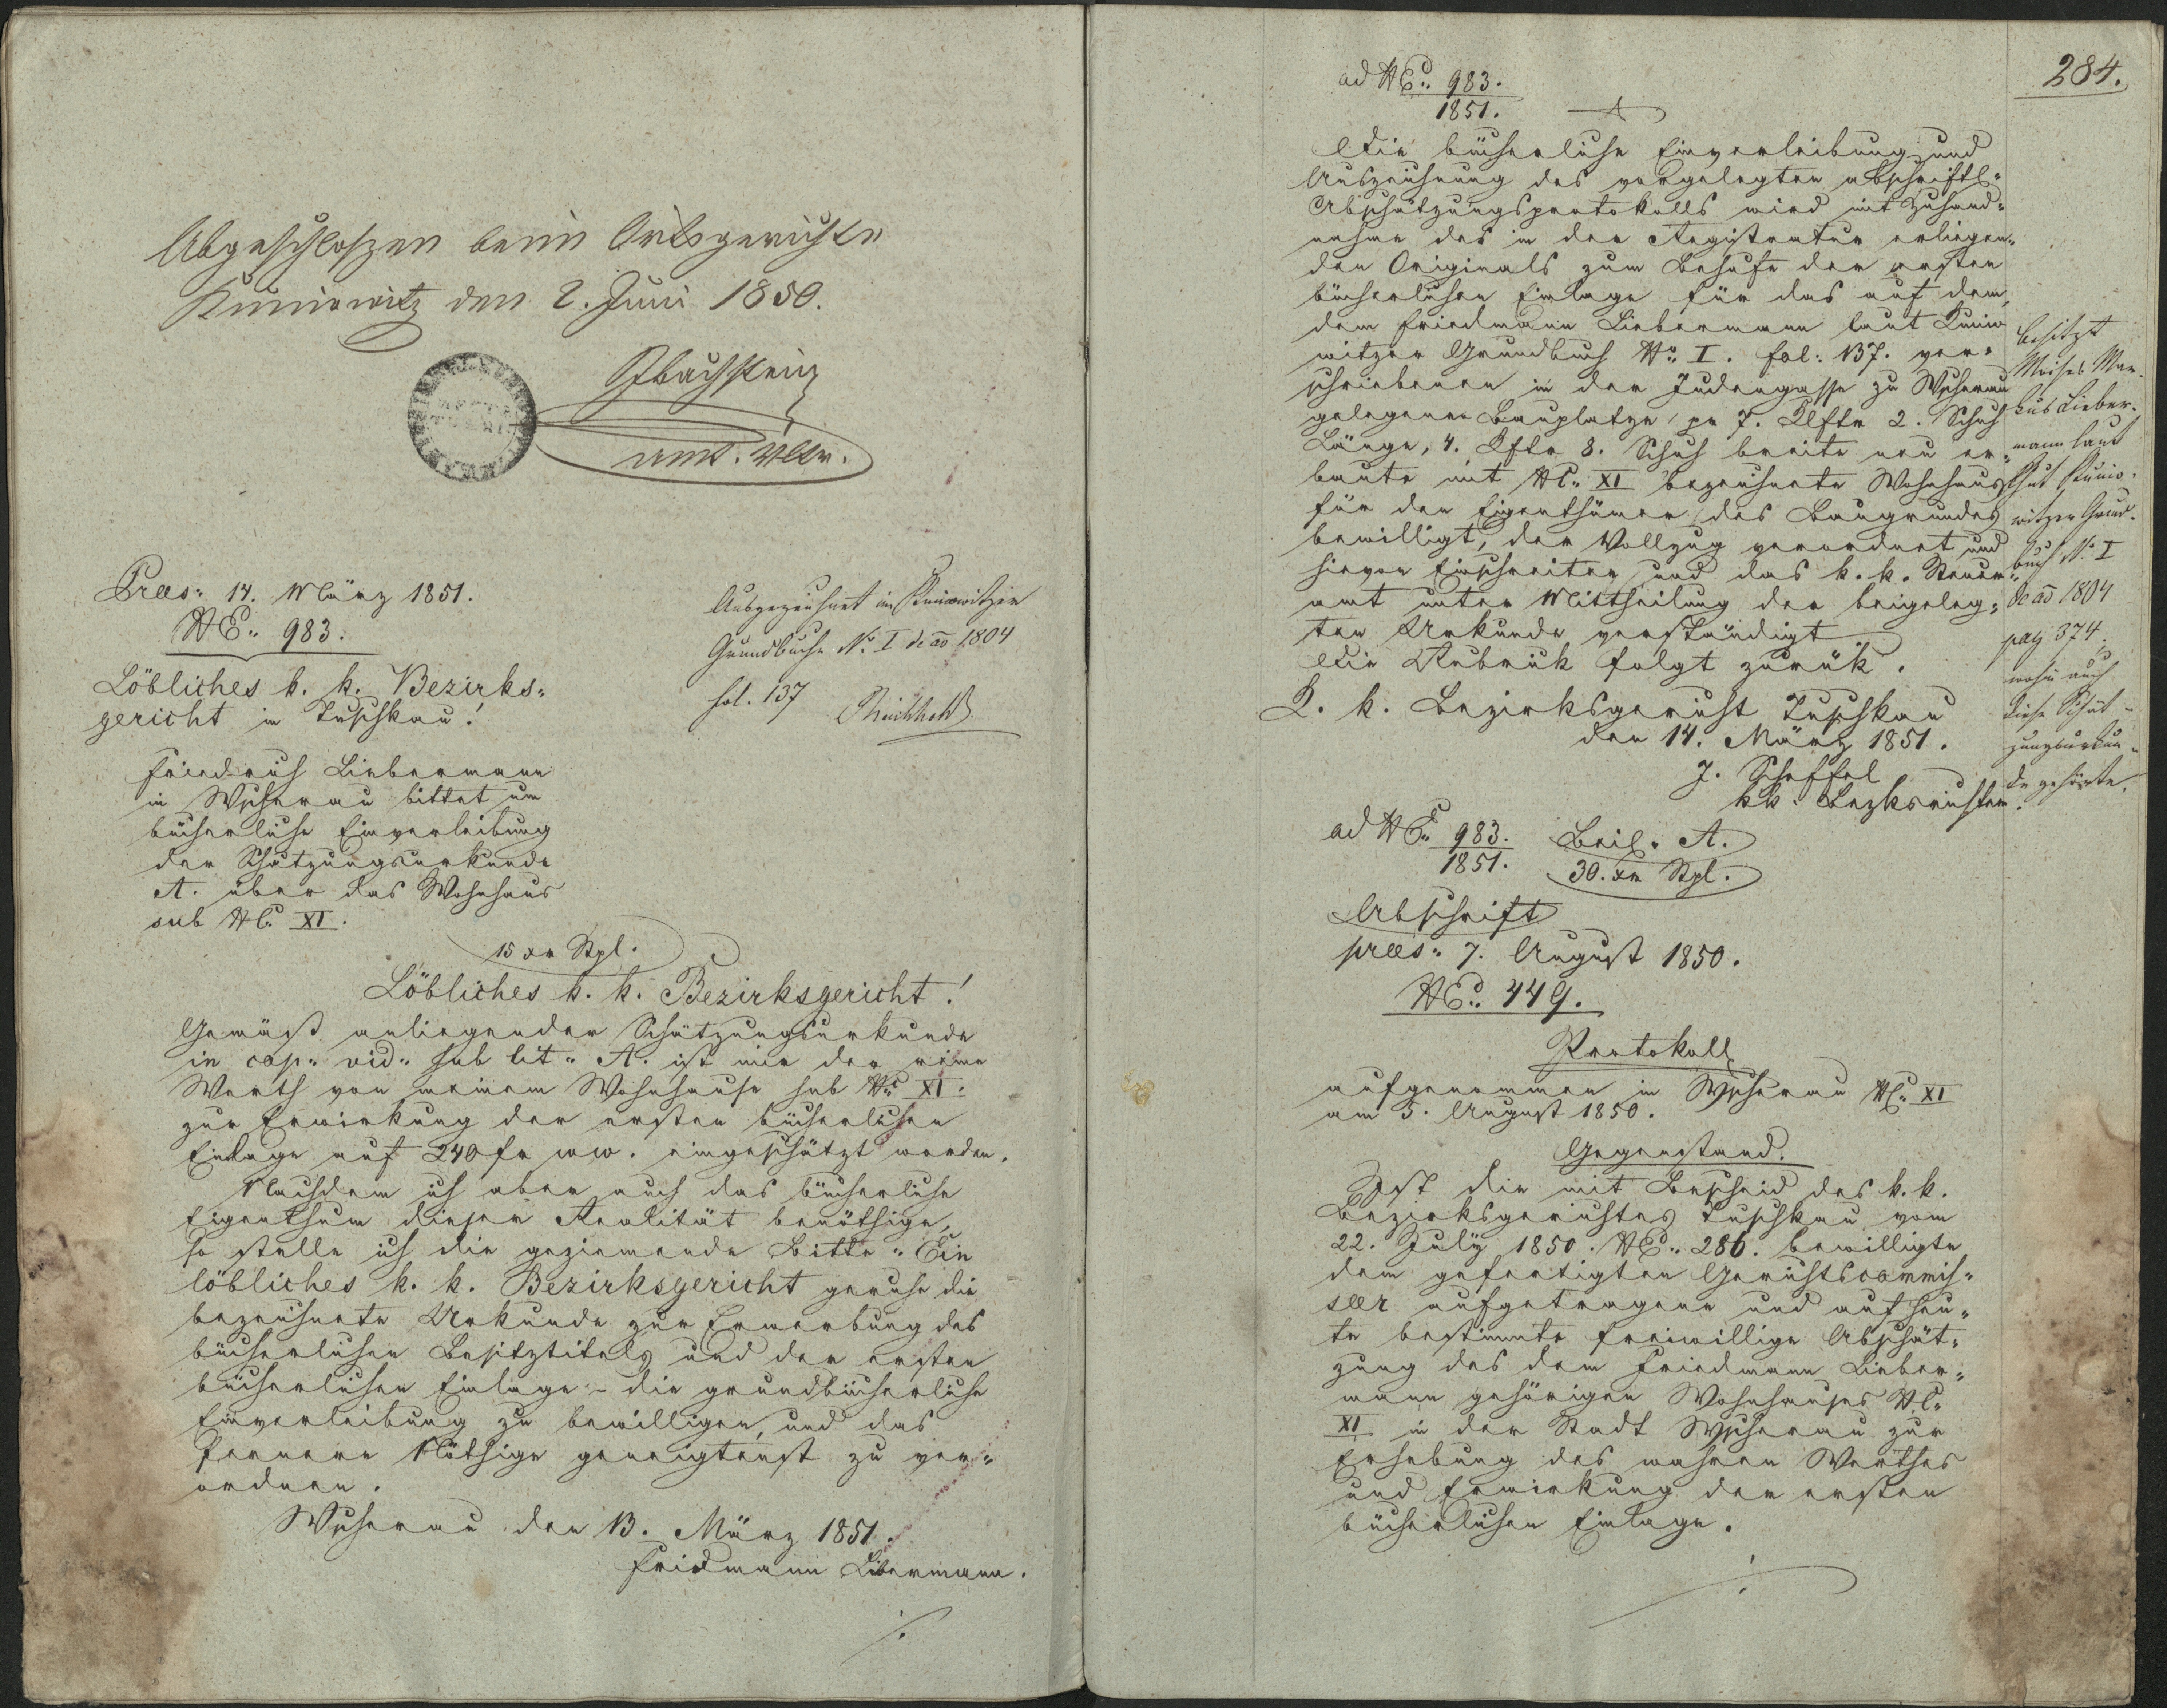 Abgeschloßen beim Ortsgerichte
Kuniowitz den 2. Juni 1850.
amt. Vltr.
Prees: 14. März 1851.
NE: 983.
Löbliches k. k. Bezirks-
gericht in Tuschkau!
Friedrich Liebermann
in Wscherau bittet um
bücherliche Einverleibung
der Schätzungsurkunde
A. über das Wohnhaus
sub NC. XI.
Ausgezeichnet im Kuniowitzer
Grundbuche No. I de ao 1804
fol. 137
15 xr Stpl.
Löbliches k. k. Bezirksgericht!
Gemäß anliegender Schätzungsurkunde
in cop: vid: sub lit: A. ist mir der reine
Werth von meinem Wohnhause sub No. XI.
zur Erwirkung der ersten bücherlichen
Einlage auf 240 fr WW. eingeschätzt worden.
Nachdem ich aber auch das bücherliche
Eigenthum dieser Realität benöthige,
so stelle ich die geziemende Bitte: Ein
löbliches k. k. Bezirksgericht geruhe die
bezeichnete Urkunde zur Erwerbung des
bücherlichen Besitztitels und der ersten
bücherlichen Einlage - die grundbücherliche
Einverleibung zu bewilligen, und das
fernere Nöthige geneigtenst zu ver-
ordnen.
Wscherau den 13. März 1851.
Fridmann Libermann.
284.
ad NE: 983.
1851.
Die bücherliche Einverleibung und
Auszeichnung des vorgelegten abschriftl:
Abschätzungsprotokolls wird mit Zuhand-
nahme des in der Registratur erliegen-
den Originals zum Behufe der ersten
bücherlichen Einlage für das auf dem,
dem Friedmann Liebermann laut Kunio
witzer Grundbuch No. I. fol: 137. ver-
schriebenen in der Judengasse zu Wscherau
gelegenen Bauplatze pr 7. Klftr 2. Schuh
Länge, 4. Kftr 3. Schuh breite neu er-
baute mit NC. XI bezeichnete Wohnhaus
für den Eigenthümer des Baugrundes
bewilligt, der Vollzug verordnet und
hievon Einschreiter und das k. k. Steuer-
amt unter Mittheilung der beigeleg-
ten Urkunde verständigt
Die Rubrick folgt zurük.
K. k. Bezirksgericht Tuschkau
den 14. März 1851.
J. Scheffel
kk. Bezksrichter.
besitzt
Moises Mar-
kus Lieber-
mann laut
Kunio-
witzer Grund-
buch No. I
de ao 1804
pag 374.
wohin auch
diese Schät-
zungsurkun-
de gehörte.
ad NE: 983.
1851.
Beil. A.
30. xr Stpl.
Abschrift
prees: 7. August 1850.
NE: 449.
Protokoll
aufgenommen in Wscherau NC. XI
am 5. August 1850.
Gegenstand.
Ist die mit Bescheid des k. k.
Bezirksgerichtes Tuschkau vom
22. July 1850. NE: 286. bewilligte
dem gefertigten Gerichtscommis-
seer aufgetragene und auf heu-
te bestimmte freiwillige Abschät-
zung des dem Friedmann Lieber-
mann gehörigen Wohnhauses NC.
XI in der Stadt Wscherau zur
Erhebung des wahren Werthes
und Erwirkung der ersten
bücherlichen Einlage.